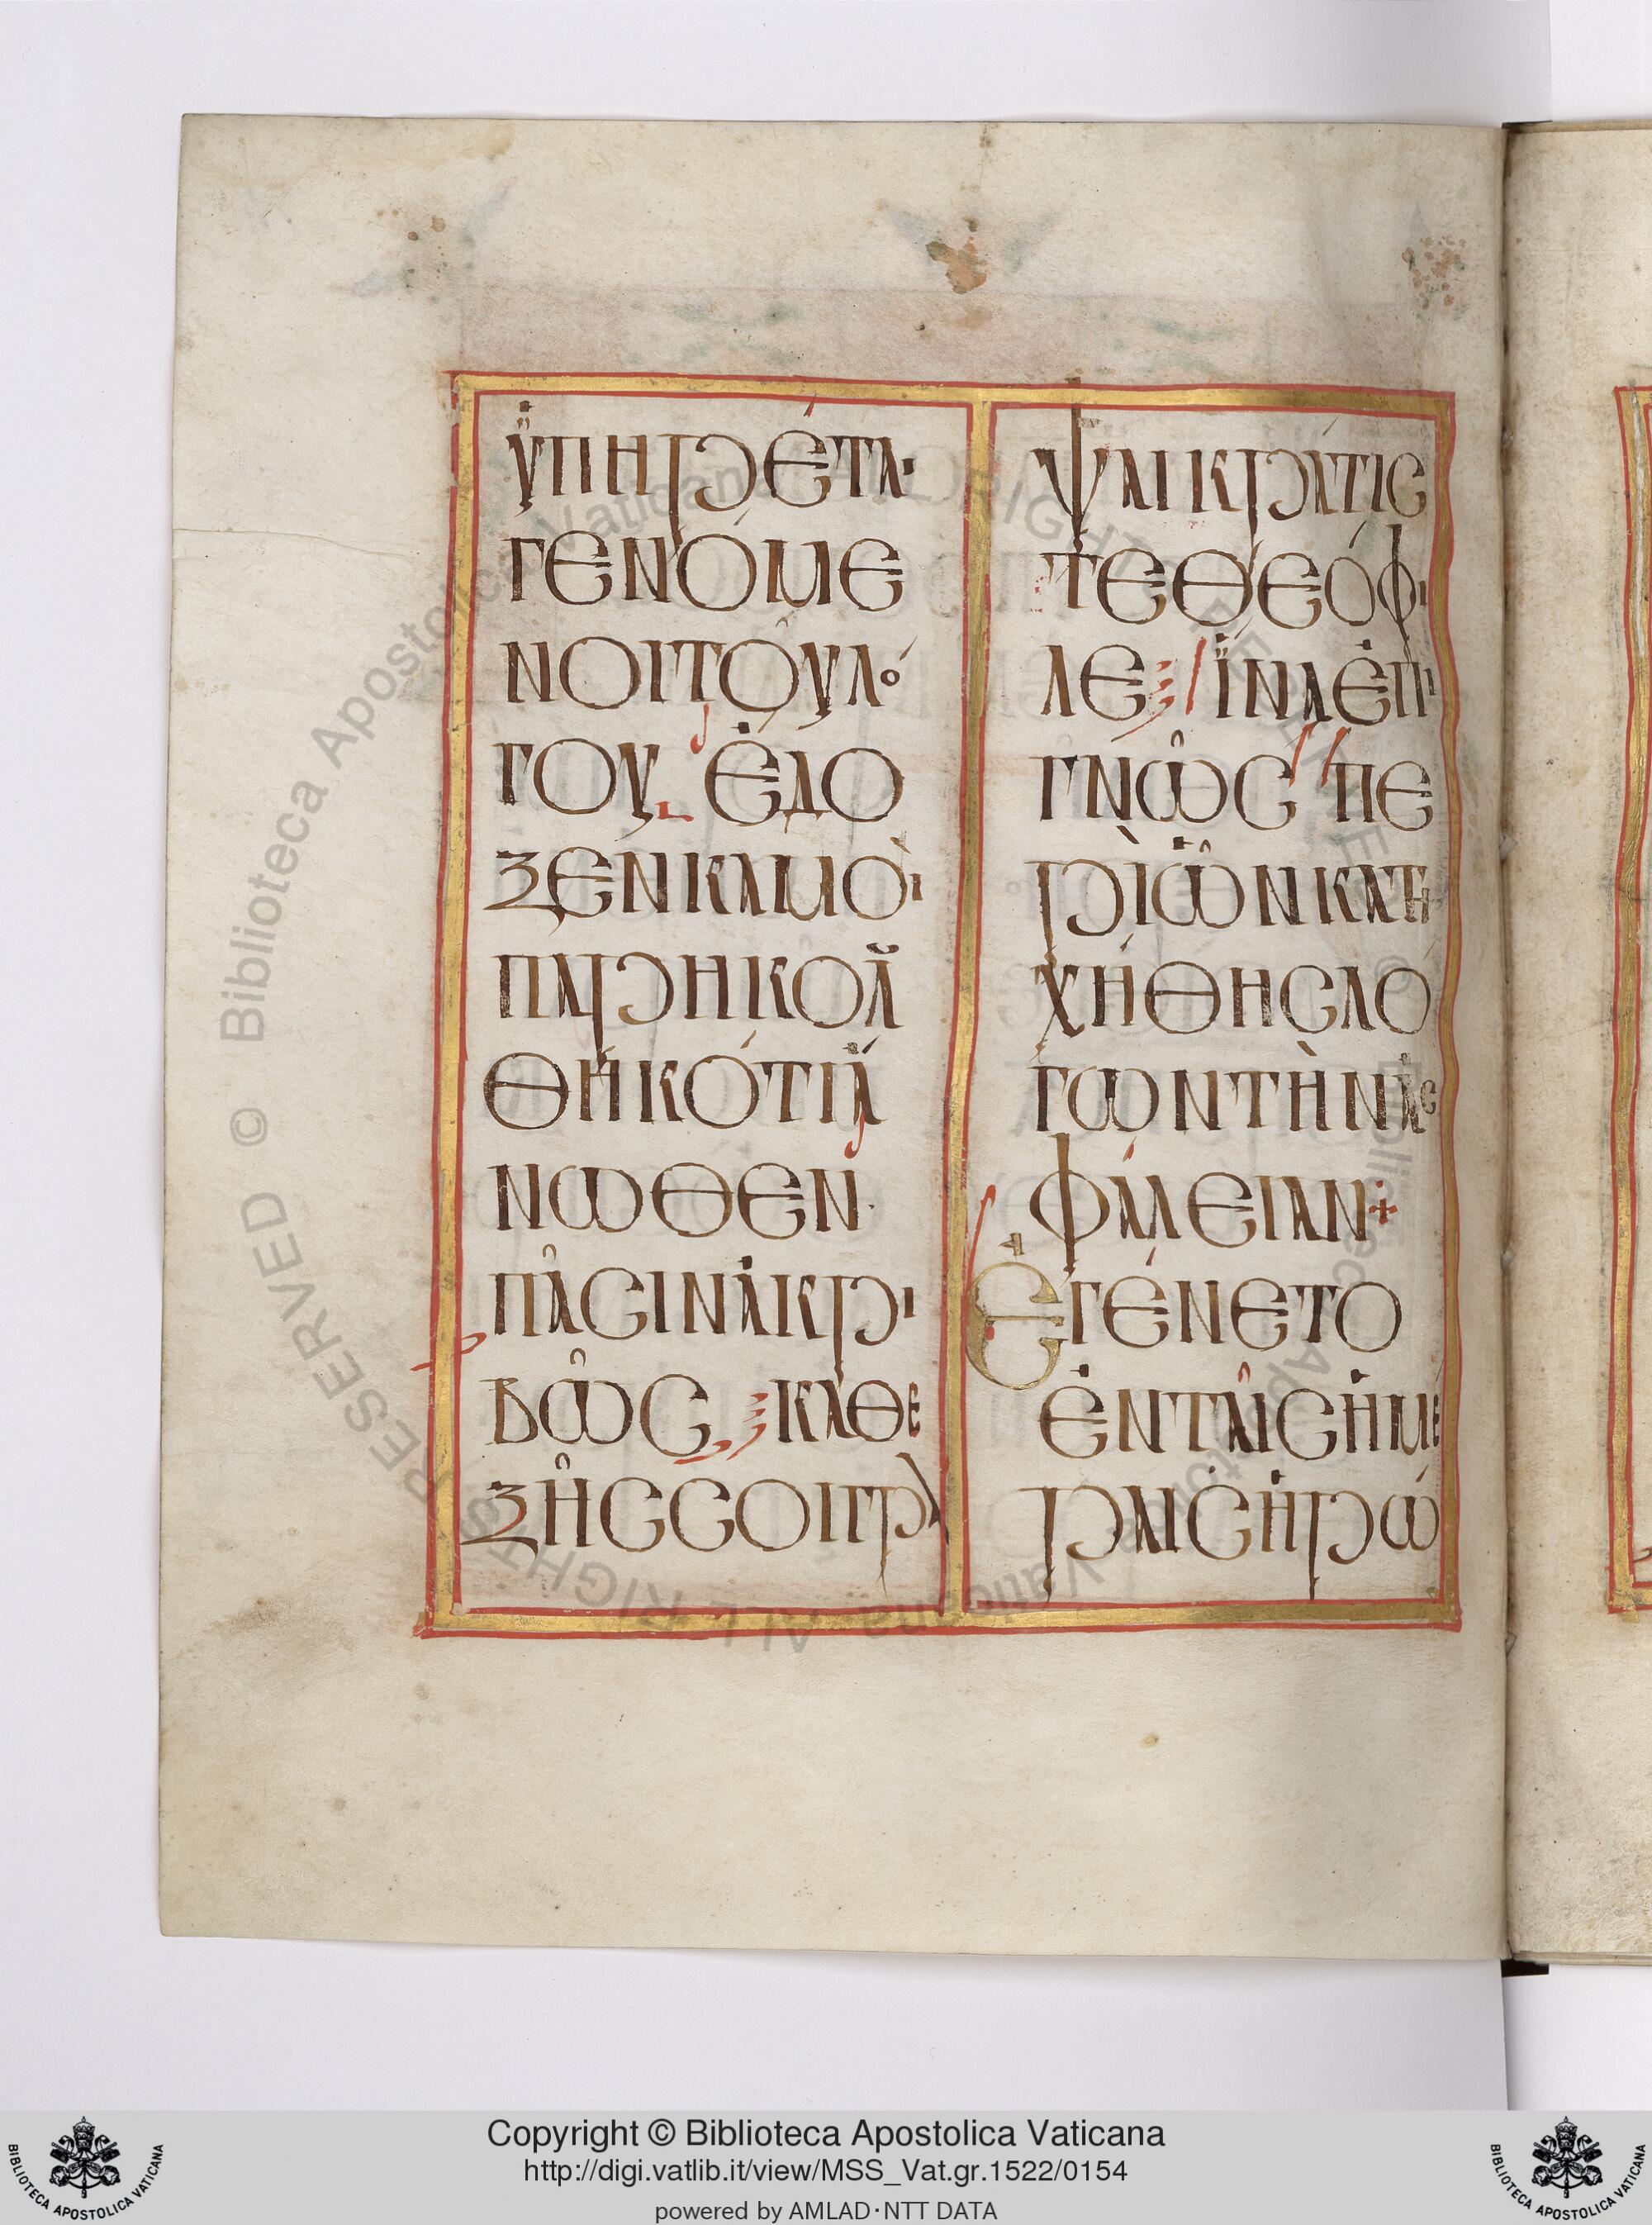 ὑπηρέται
γενόμε
νοι τοῦ λό
γου ἔδο
ξεν καμοὶ
παρηκολου
θηκότι ἄ
νωθεν
πᾶσιν ἀκρι
βῶς καθε
ξῆς σοι γρά
ψαι κράτισ
τε Θεόφι
λε ἵνα ἐπι
γνῶς πε
ρὶ ὧν κατη
χήθης λό
γων τὴν ἀσ
φάλειαν +
Ἐγένετο
ἐν ταῖς ἡμέ
ραις Ἡρώ
Copyright © Biblioteca Apostolica Vaticana
http://digi.vatlib.it/view/MSS_Vat.gr.1522/0154
powered by AMLAD·NTT DATA
BIBLIOTECA APOSTOLICA VATICANA
BIBLIOTECA APOSTOLICA VATICANA
Biblioteca Apostolica Vaticana ALL RIGHTS RESERVED ©